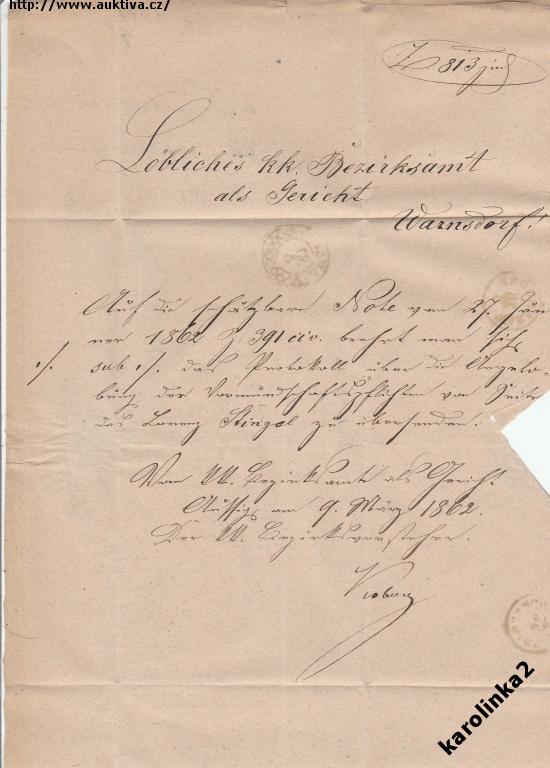 http://www.auktiva.cz/
Z 813 jud
Löbliches kk. Bezirksamt
als Gericht
Warnsdorf!
Auf die schätzbare Note vom 27. Jän
ner 1862 Z. 391 civ. beehrt man sich
./. sub ./. das Protokoll über die Angelo-
bung der Vormundschaftspflichten von Seite
des Lorenz Stingel zu übersenden.
Vom kk. Bezirksamte als Gericht
Aussig am 9. März 1862.
Der kk. Bezirksvorsteher.
karolinka2